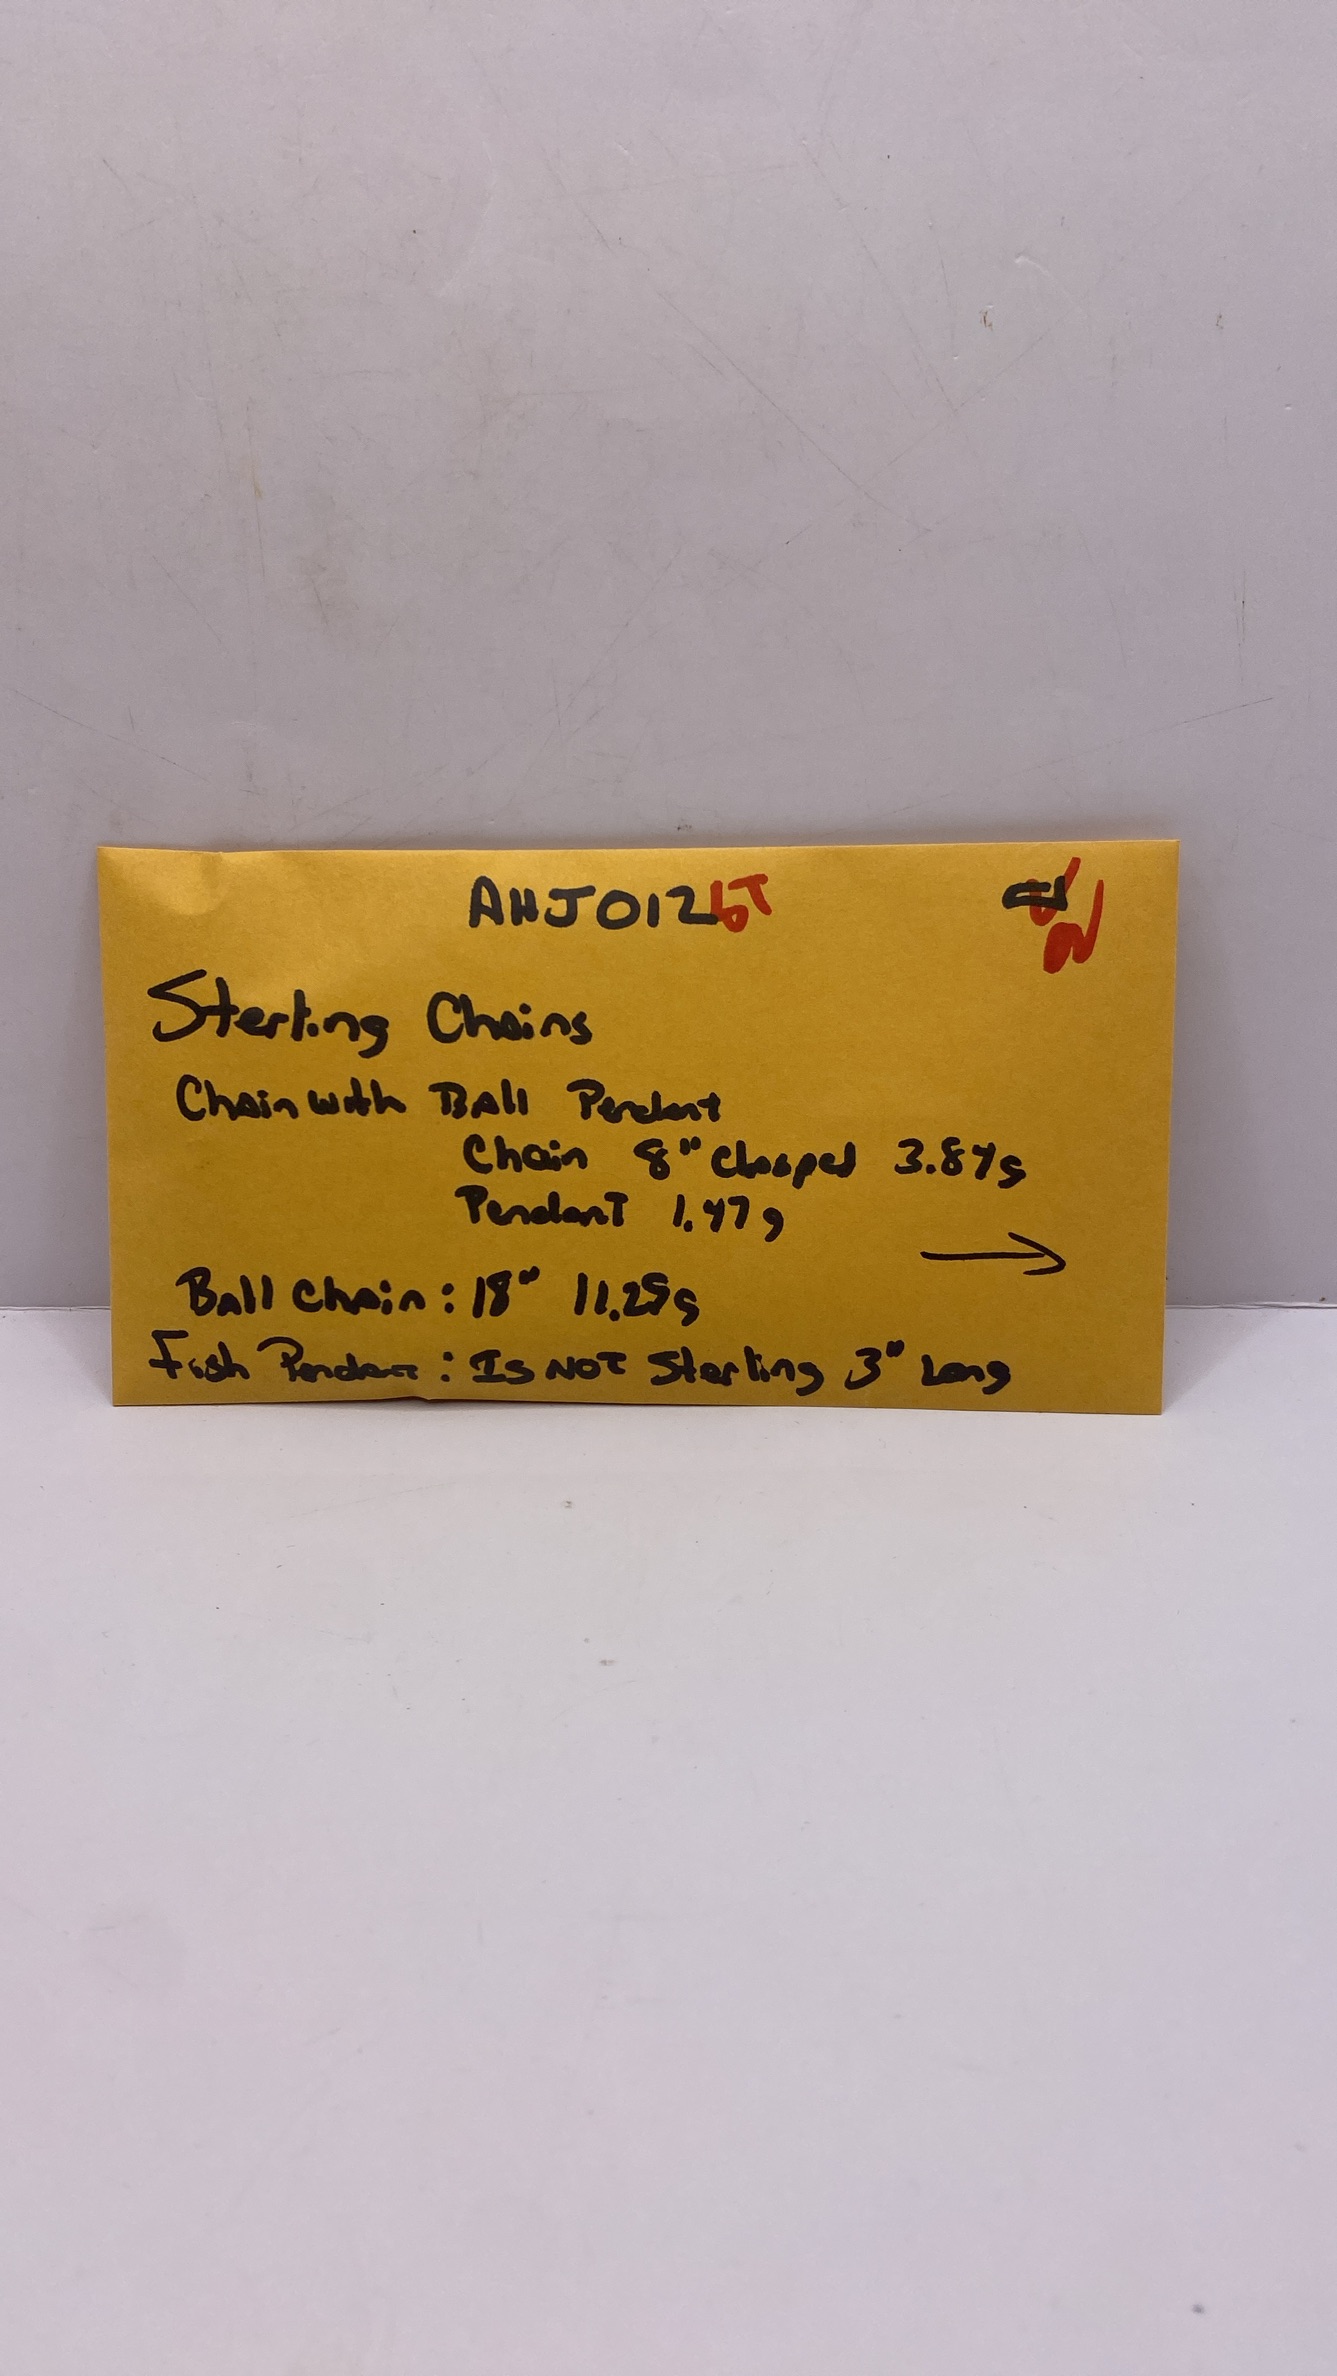 AHJ012bT
Sterling Chains
Chain with Ball Pendant
Chain 8" Clasped 3.87g
Pendant 1.47g
→
Ball Chain: 18" 11.25g
Fish Pendant: Is NOT Sterling 3" Long